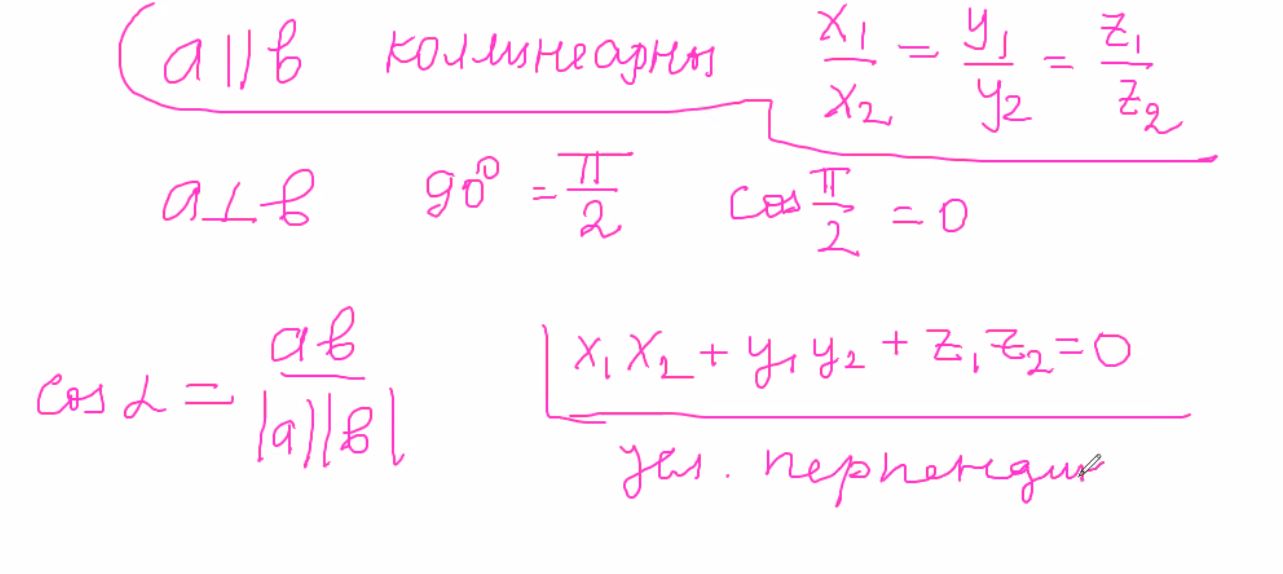 a || b коллинеарны x₁/x₂ = y₁/y₂ = z₁/z₂
a ⊥ b 90⁰ = π/2 cos π/2 = 0
cos α = ab/|a||b| x₁x₂ + y₁y₂ + z₁z₂ = 0
усл. перпендик